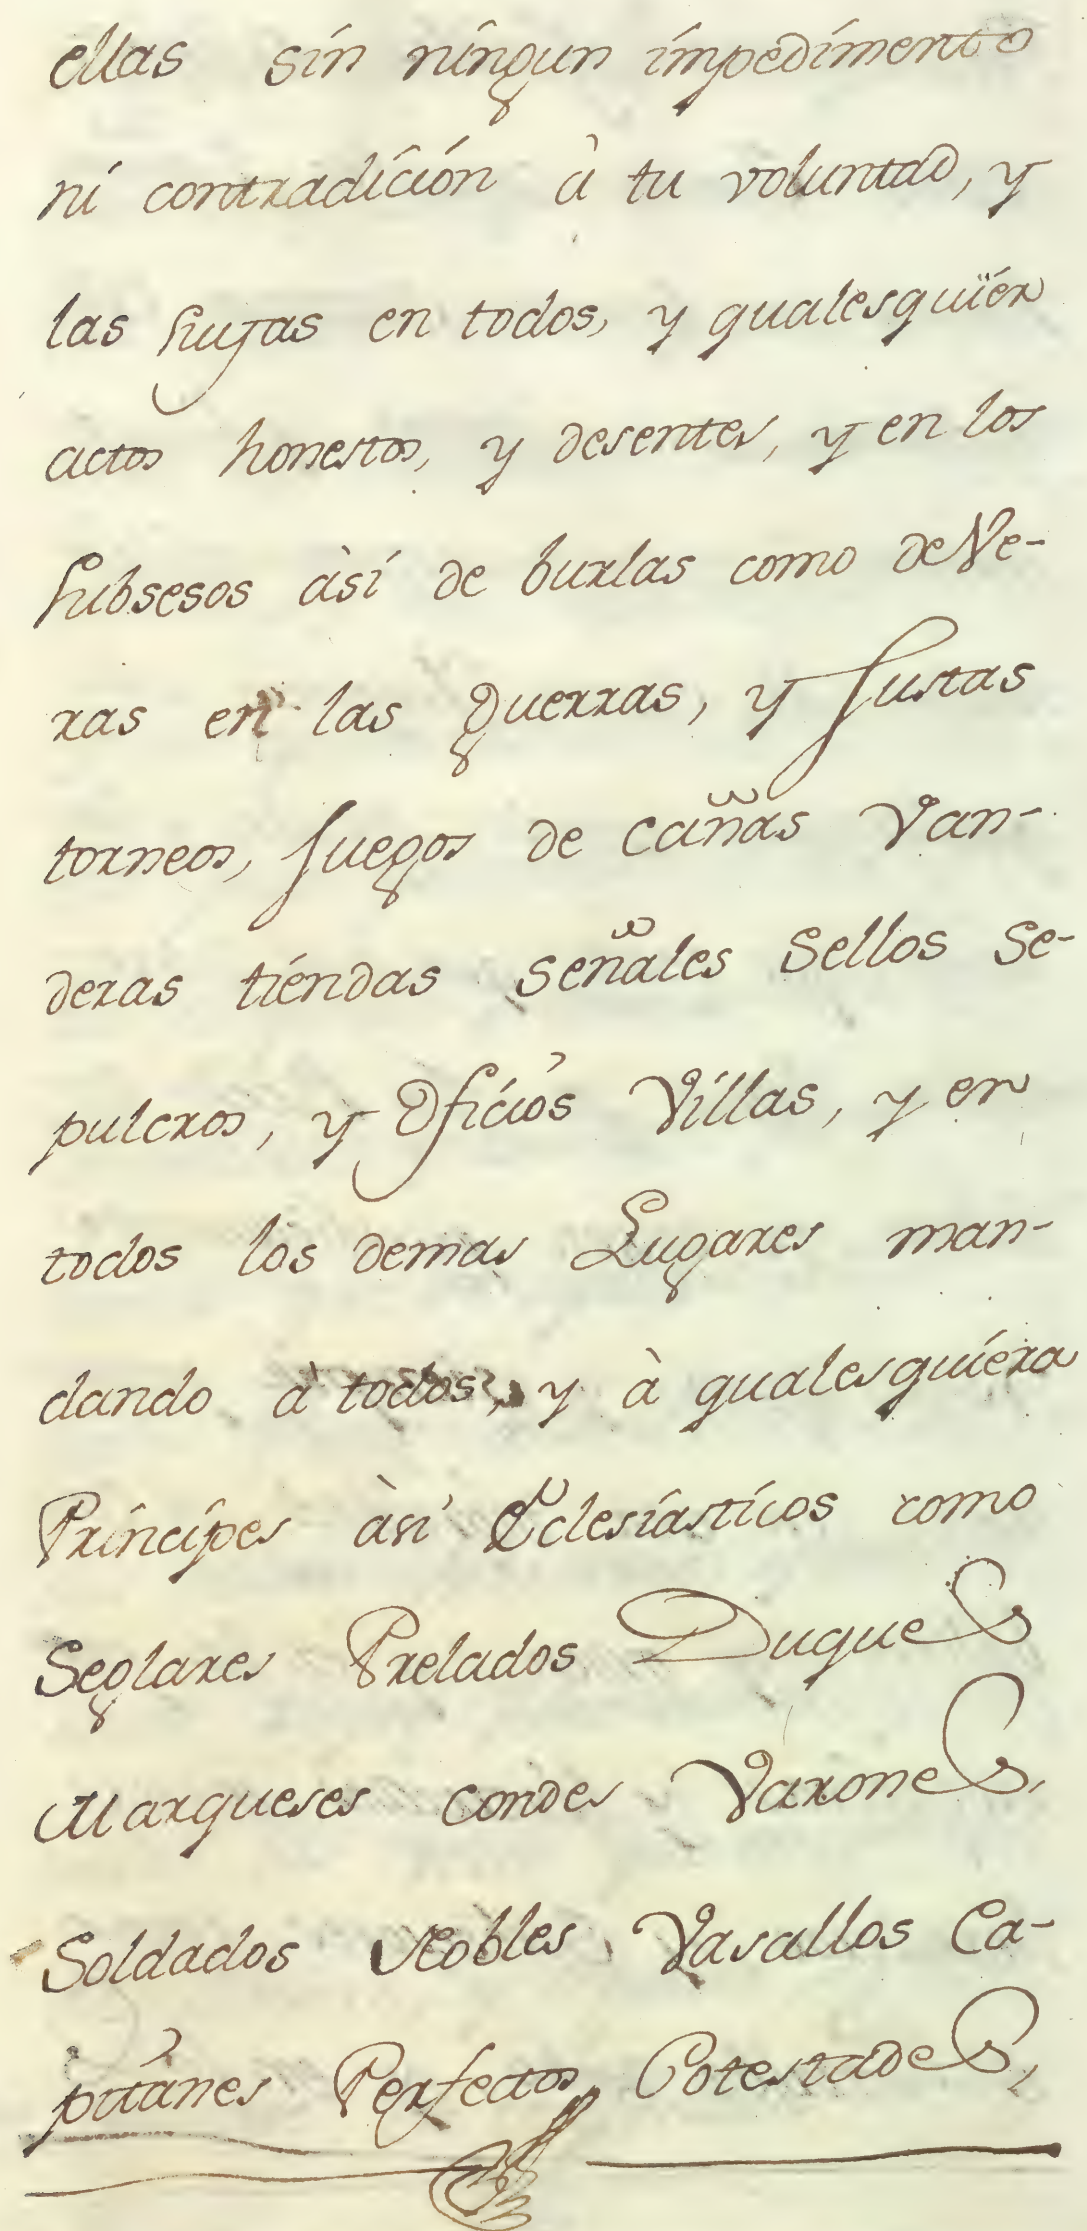 ellas sin ningun impedimento
ni contradición à tu voluntad, y
las suyas en todos, y qualesquier
actos honestos, y desentes, y en los
subsesos àsi de burlas como de Ve-
ras en las guerras, y Justas
torneos, Juegos de Cañas Van-
deras tiendas señales Sellos Se-
pulcros, y Oficios Villas, y en
todos los demas Lugares man-
dando à todos, y à qualesquiera
Principes àsi Eclesiasticos como
Seglares Prelados Duques
Marqueses Condes Varones,
Soldados Nobles Vasallos Ca-
pitanes Perfectos, Potestades,